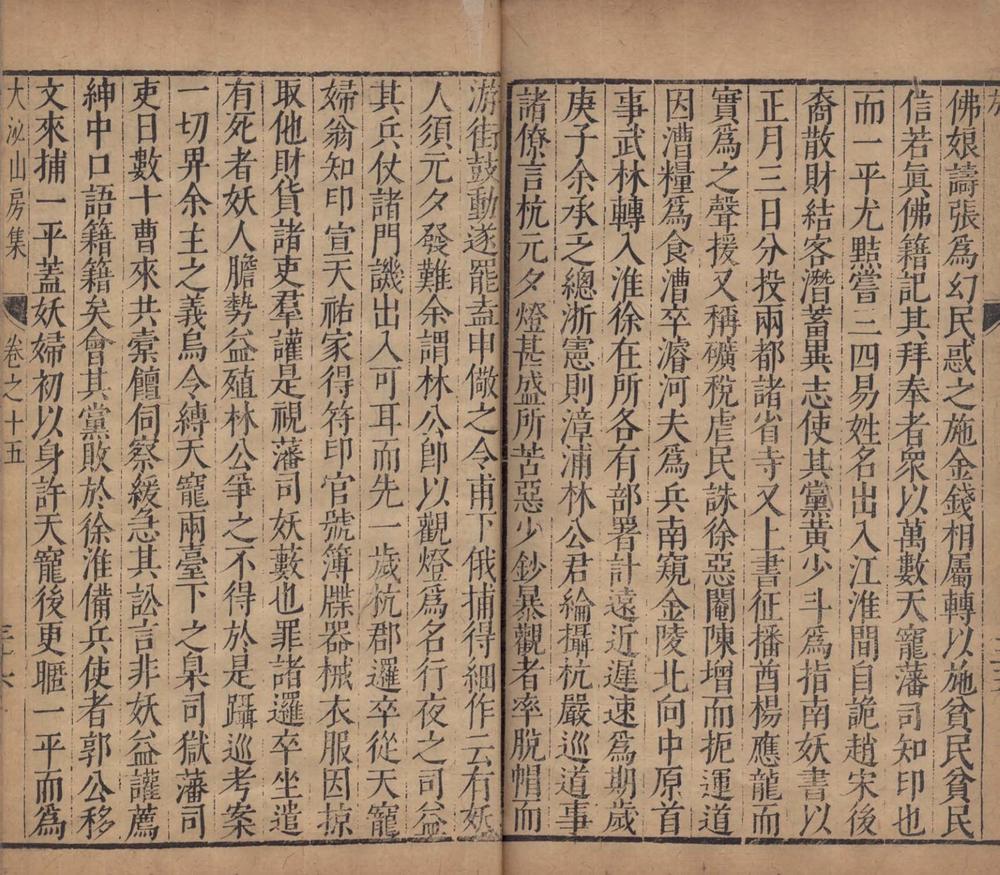 佛娘譸張爲幻民惑之施金錢相屬轉以施貧民貧民
信若眞佛籍記其拜奉者衆以萬數天寵藩司知印也
而一平尤黠嘗三四易姓名出入江淮間自詭趙宋後
裔散財結客潛蓄異志使其黨黃少斗爲指南妖書以
正月三日分投兩都諸省寺又上書征播酋楊應龍而
實爲之聲援又稱礦稅虐民誅徐惡閹陳增而扼運道
因漕糧爲食漕卒濬河夫爲兵南窺金陵北向中原首
事武林轉入淮徐在所各有部署計遠近遲速爲期歲
庚子余承乏總浙憲則漳浦林公君綸攝杭嚴巡道事
諸僚言杭元夕燈甚盛所苦惡少鈔暴觀者率脫帽而
游街鼓動遂罷盍申儆之令甫下俄捕得細作云有妖
人須元夕發難余謂林公卽以觀燈爲名行夜之司益
其兵仗諸門譏出入可耳而先一歲杭郡邏卒從天寵
婦翁知印宣天祐家得符印官號簿牒器械衣服因掠
取他財貨諸吏羣讙是視藩司妖藪也罪諸邏卒坐遣
有死者妖人膽勢益殖林公爭之不得於是躡巡考案
一切界余主之義烏令縛天寵兩臺下之臬司獄藩司
吏日數十曹來共橐饘伺察緩急其訟言非妖益讙薦
紳中口語籍籍矣會其黨敗於徐淮備兵使者郭公移
文來捕一平蓋妖婦初以身許天寵後更暱一平而爲
大泌山房集
卷之十五